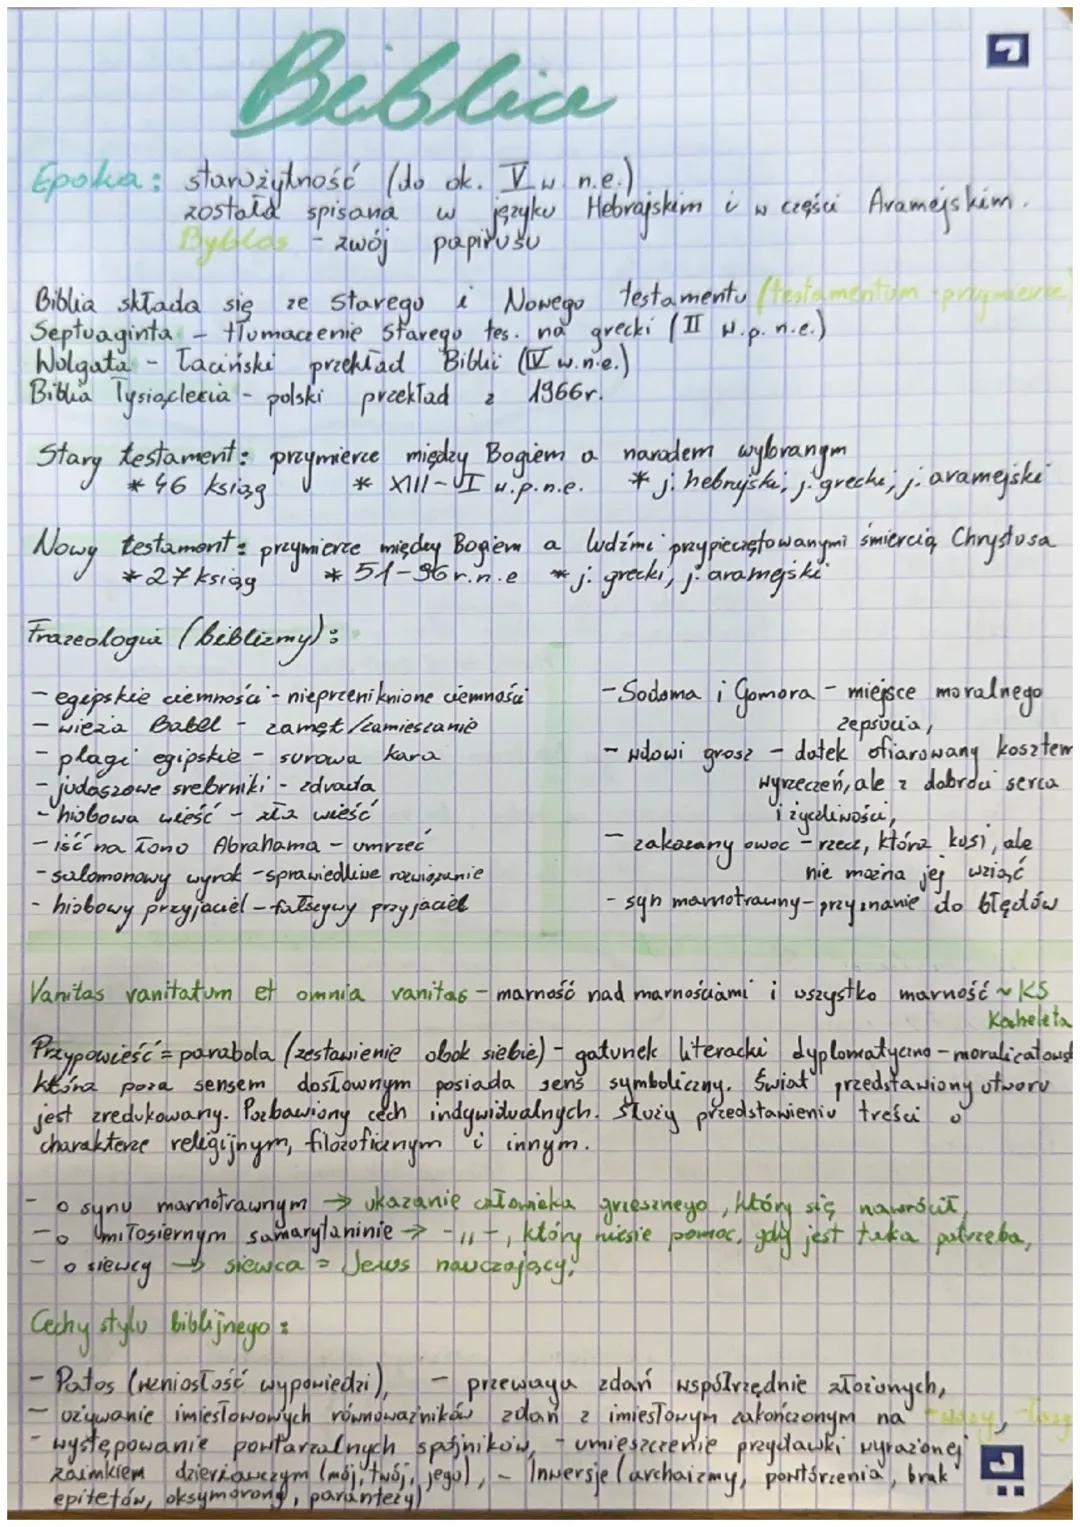 Biblia
Epoka: starożytność (do ok. V w. n.e.)
została spisana w języku Hebrajskim i w części Aramejskim.
Byblos - zwój papirusu
Biblia składa się ze Starego i Nowego testamentu (testamentum - przymierze)
Septuaginta - tłumaczenie Starego tes. na grecki (II w.p.n.e.)
Wulgata - Łaciński przekład Biblii (IV w.n.e.)
Biblia Tysiąclecia - polski przekład z 1966r.
Stary testament: przymierze między Bogiem a narodem wybranym
* 46 ksiąg * XIII - I w.p.n.e. * j. hebrajski, j. grecki, j. aramejski
Nowy testament: przymierze między Bogiem a ludźmi przypieczętowanymi śmiercią Chrystusa
* 27 ksiąg * 51-96 r.n.e * j. grecki, j. aramejski
Frazeologia (biblizmy):
- egipskie ciemności - nieprzeniknione ciemności
- wieża Babel - zamęt/zamieszanie
- plagi egipskie - surowa kara
- judaszowe srebrniki - zdrada
- hiobowa wieść - zła wieść
- iść na łono Abrahama - umrzeć
- salomonowy wyrok - sprawiedliwe rozwiązanie
- hiobowy przyjaciel - fałszywy przyjaciel
- Sodoma i Gomora - miejsce moralnego
zepsucia,
- wdowi grosz - datek ofiarowany kosztem
wyrzeczeń, ale z dobroci serca
i życzliwości,
- zakazany owoc - rzecz, która kusi, ale
nie można jej wziąć
- syn marnotrawny - przyznanie do błędów
Vanitas vanitatum et omnia vanitas - marność nad marnościami i wszystko marność ~ KS
Koheleta
Przypowieść = parabola (zestawienie obok siebie) - gatunek literacki dyplomatyczno - moralizatorski
która poza sensem dosłownym posiada sens symboliczny. Świat przedstawiony utworu
jest zredukowany. Pozbawiony cech indywidualnych. Służy przedstawieniu treści o
charakterze religijnym, filozoficznym i innym.
- o synu marnotrawnym → ukazanie człowieka grzesznego, który się nawrócił,
- o miłosiernym samarytaninie → -,,-, który niesie pomoc, gdy jest taka potrzeba,
- o siewcy → siewca = Jezus nauczający,
Cechy stylu biblijnego:
- Patos (wzniosłość wypowiedzi), - przewaga zdań współrzędnie złożonych,
- używanie imiesłowowych równoważników zdań z imiesłowym zakończonym na -wszy, -łszy
- występowanie powtarzalnych spójników, - umieszczenie przydawki wyrażonej
zaimkiem dzierżawczym (mój, twój, jego), - Inwersje (archaizmy, powtórzenia, brak
epitetów, oksymorony, parantezy)